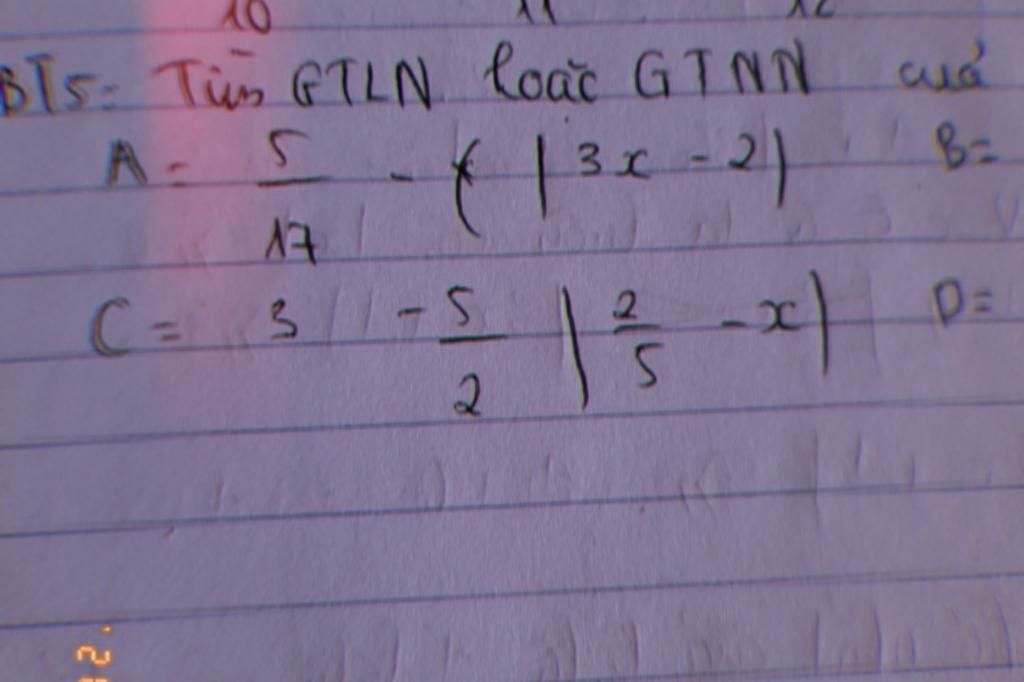 10 11 12
BT5: Tìm GTLN hoặc GTNN của
A = 5/17 - ( |3x - 2| B =
C = 3 - 5/2 |2/5 - x| D =